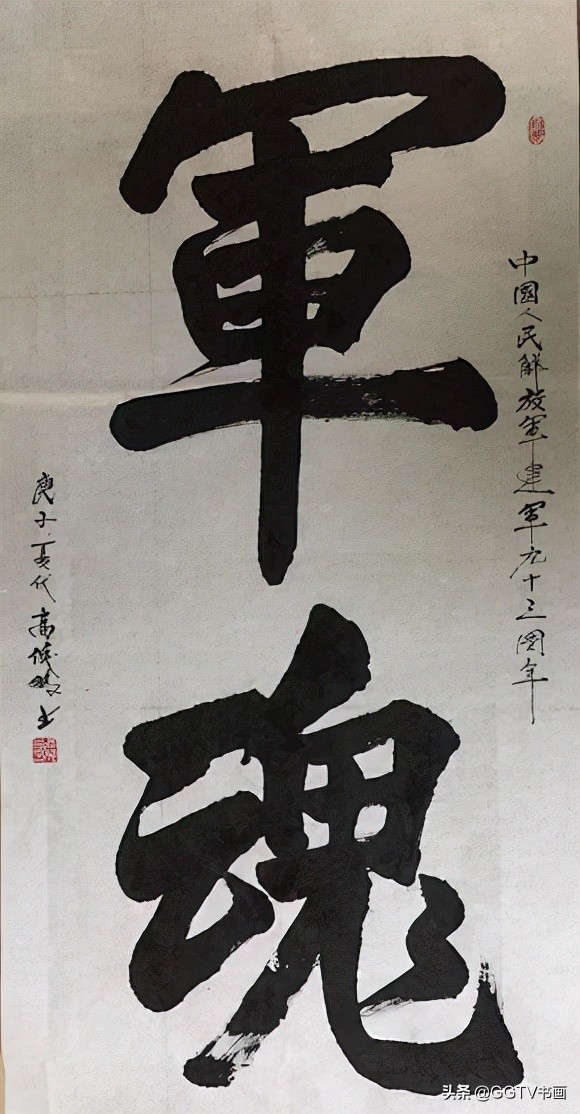 中國人民解放軍建軍九十三周年
軍魂
庚子夏代高书
头条 @GGTV书画